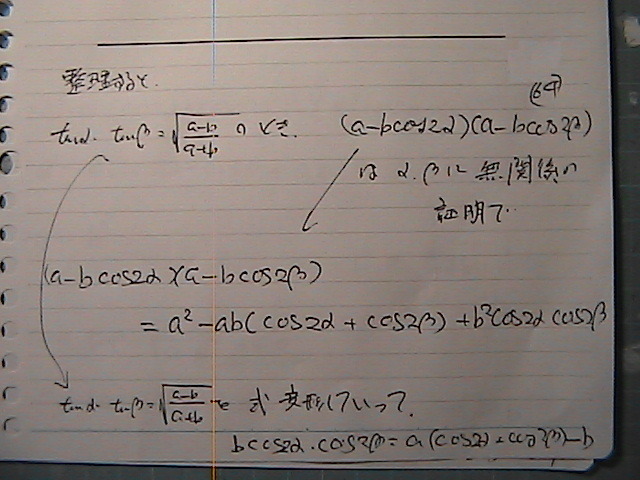 整理すると、
(69)
tanα・tanβ=√(a-b)/(a+b) のとき、 (a-bcos2α)(a-bcos2β)
は α,βに無関係の
証明で…
(a-bcos2α)(a-bcos2β)
= a²-ab(cos2α+cos2β)+b²cos2αcos2β
tanα・tanβ=√(a-b)/(a+b) を 式変形していって、
bcos2α・cos2β=a(cos2α+cos2β)-b